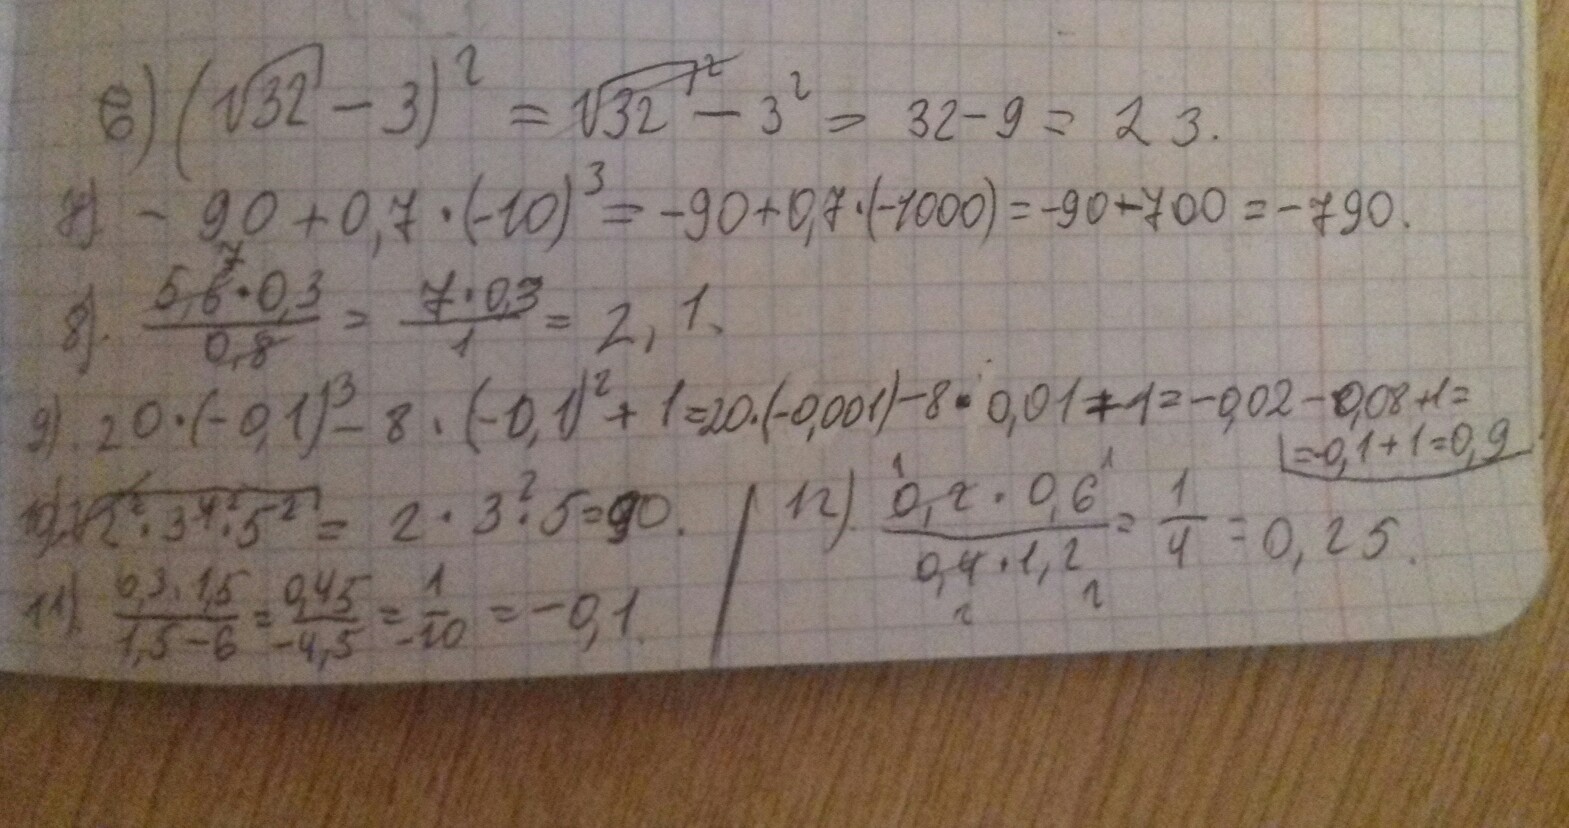 6) (√32 − 3)² = √32² − 3² = 32 − 9 = 23.
7) − 90 + 0,7 · (−10)³ = −90 + 0,7 · (−1000) = −90 − 700 = −790.
8). 5,6 · 0,3 / 0,8 = 7 · 0,3 / 1 = 2,1.
7
9). 20 · (−0,1)³ − 8 · (−0,1)² + 1 = 20 · (−0,001) − 8 · 0,01 + 1 = −0,02 − 0,08 + 1 =
= −0,1 + 1 = 0,9
10). √2² · 3⁴ · 5² = 2 · 3² · 5 = 90.
11) 0,3 · 1,5 / 1,5 − 6 = 0,45 / −4,5 = 1 / −10 = −0,1.
12). 0,2 · 0,6 / 0,4 · 1,2 = 1 / 4 = 0,25.
1 1
2 2